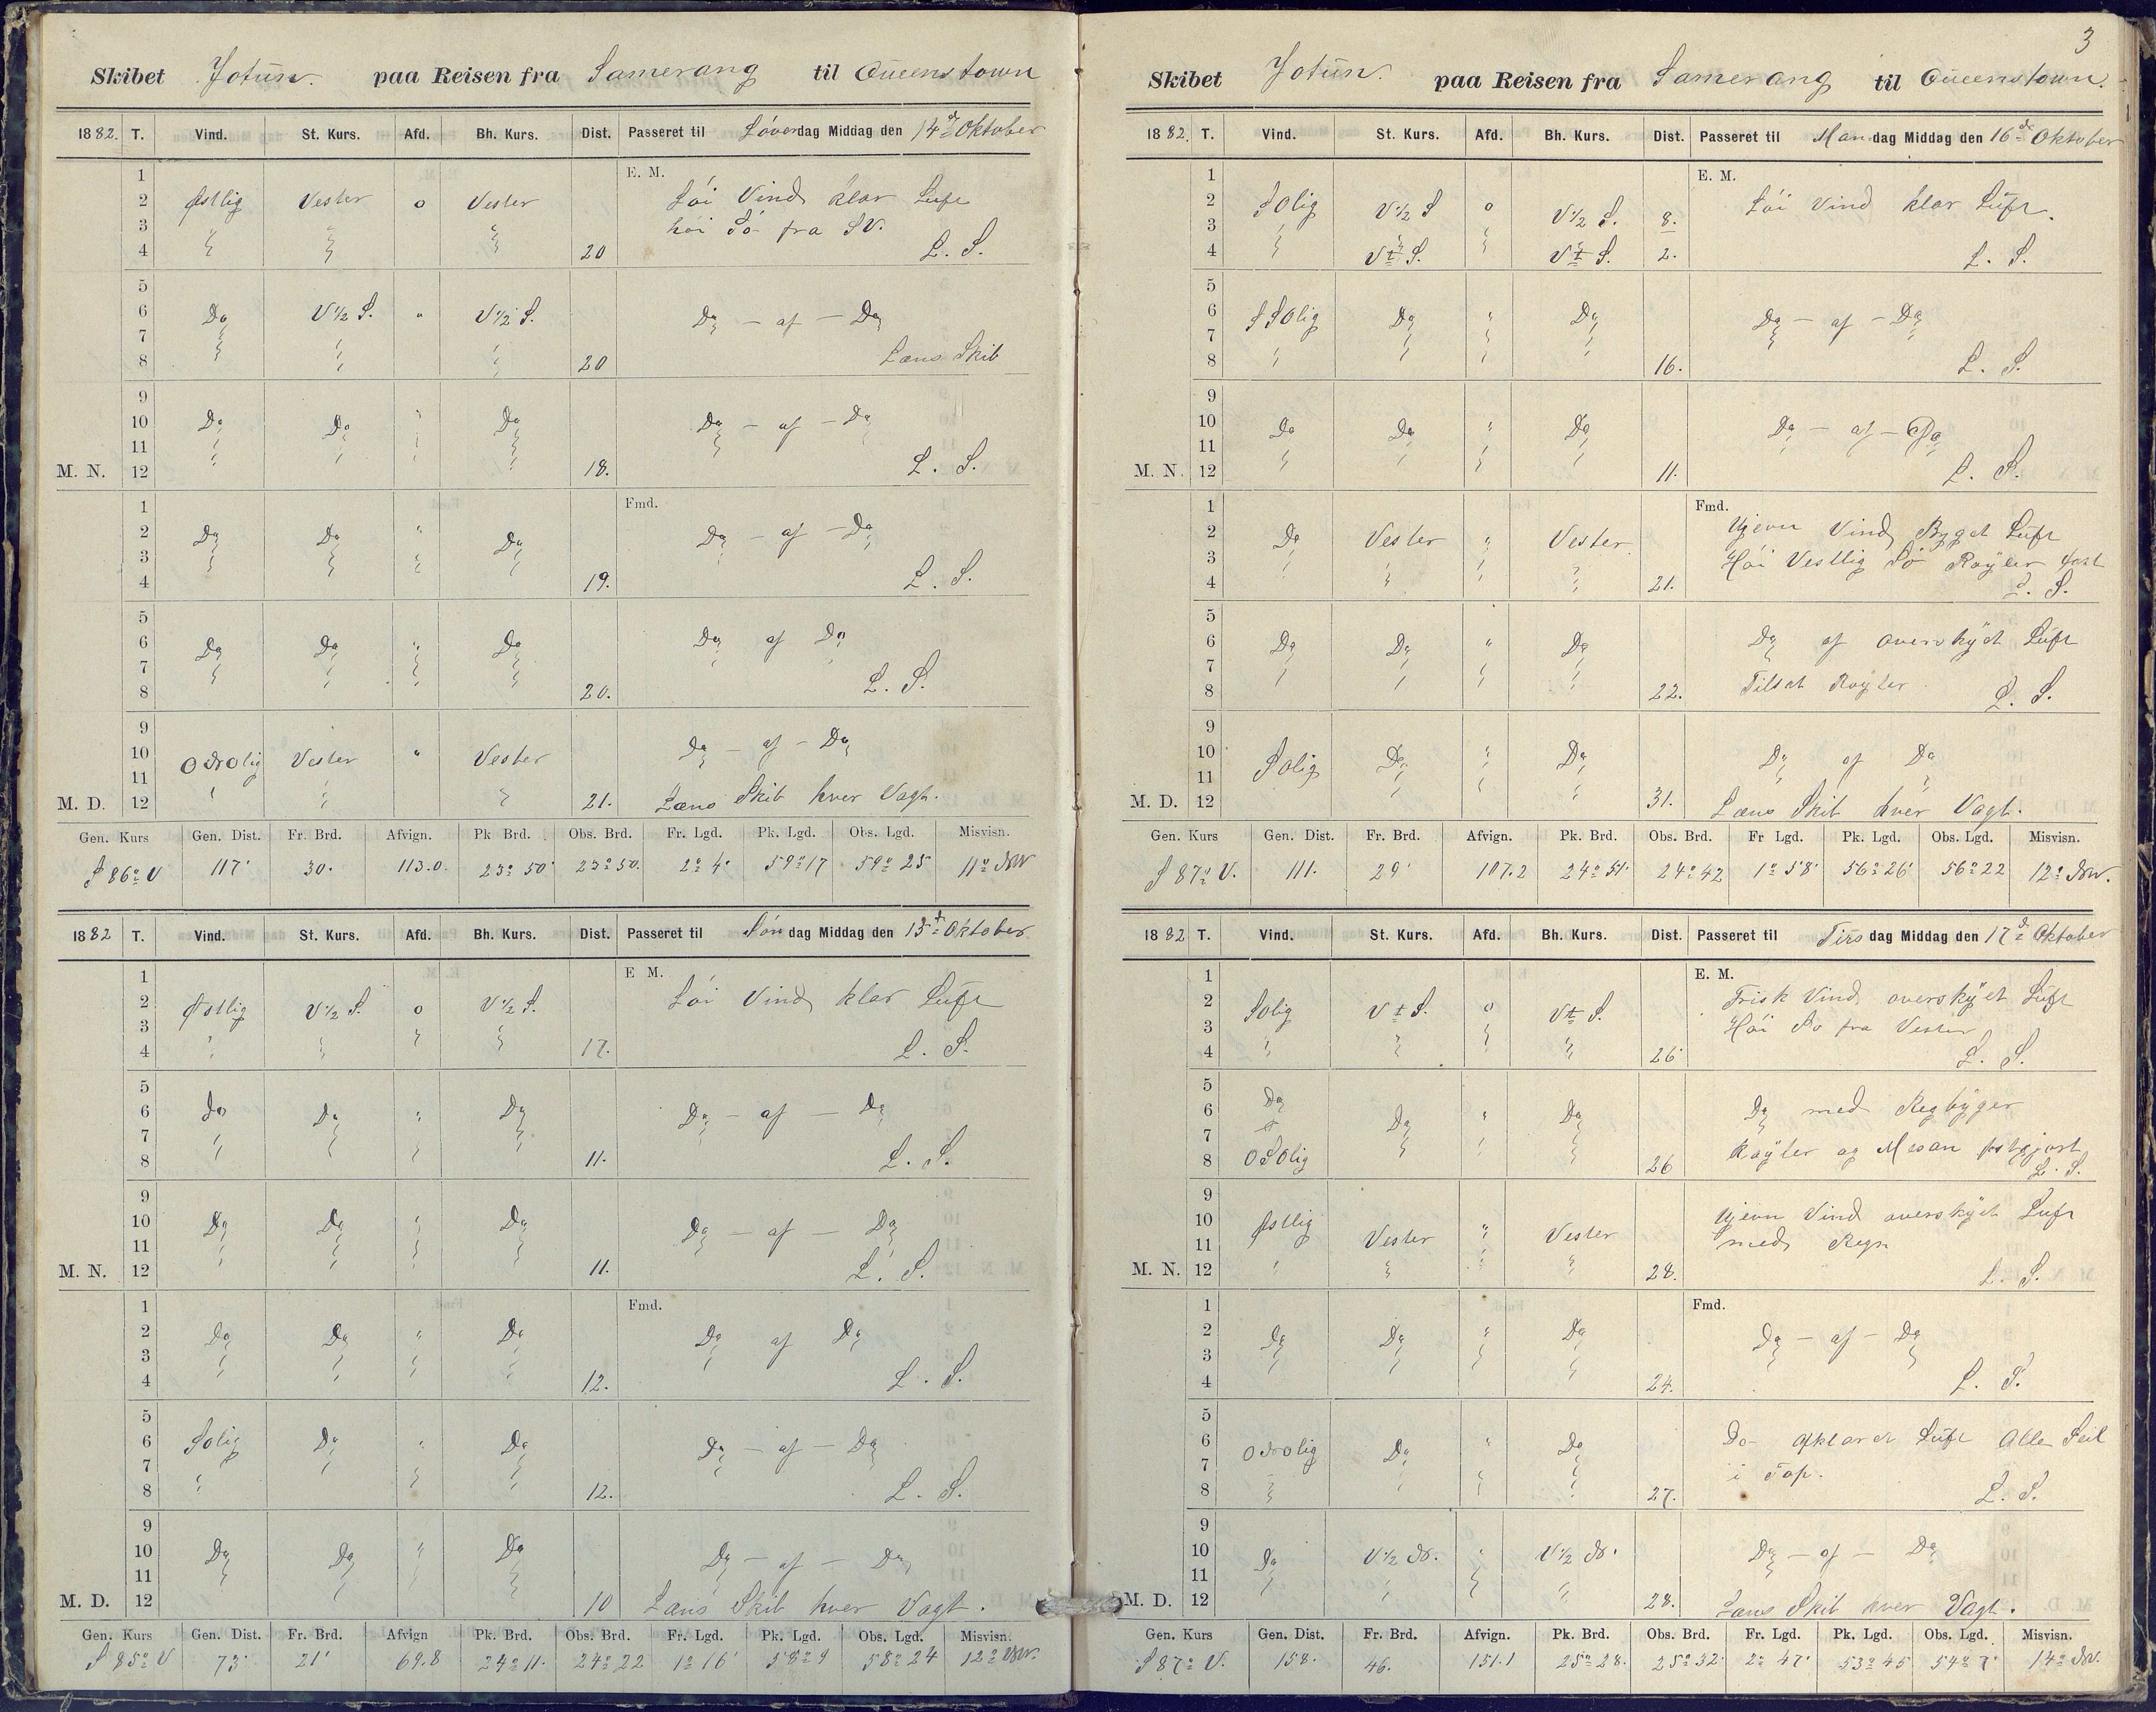 Skibet Jotun. paa Reisen fra Samerang til Queenstown
1882. T. Vind. St. Kurs. Afd. Bh. Kurs. Dist. Passeret til Löverdag Middag den 14de Oktober
1 E. M.
2 Østlig Vester o Vester Löi Vind klar Luft
3 " " " höi Sö fra SV.
4 20 L. S.
5
6 Do V ½ S. " V ½ S. Do – af – Do
7 " " "
8 20 Læns Skib
9
10 Do Do " Do Do – af – Do
11 " " " "
M. N. 12 18. L. S.
1 Fmd.
2 Do Do " Do Do – af – Do
3 " " " "
4 19. L. S.
5
6 Do Do " Do Do af Do
7 " " " "
8 20. L. S.
9
10 ONOlig Vester " Vester Do – af – Do
11 " " "
M. D. 12 21. Læns Skib hver Vagt.
Gen. Kurs Gen. Dist. Fr. Brd. Afvign. Pk Brd. Obs. Brd. Fr. Lgd. Pk. Lgd. Obs. Lgd. Misvisn.
S 86° V 117' 30' 113.0. 23° 50' 23° 50. 2° 4' 59° 17 59° 25 11° NW
1882 T. Vind. St. Kurs. Afd. Bh. Kurs. Dist. Passeret til Söndag Middag den 15de Oktober
1 E M.
2 Østlig V ½ S. o V ½ S. Löi Vind klar Luft
3 " " " "
4 17. L. S.
5
6 Do Do " Do Do – af – Do
7 " " " "
8 11. L. S.
9
10 Do Do " Do Do – af – Do
11 " " " "
M. N. 12 11. L. S.
1 Fmd.
2 Do Do " Do Do af Do
3 " " " "
4 12. L. S.
5
6 SOlig Do " Do Do – af – Do
7 " " " "
8 12. L. S.
9
10 Do Do " Do Do – af – Do
11 " " " "
M. D. 12 10 Læns Skib hver Vagt.
Gen. Kurs Gen. Dist. Fr. Brd. Afvign Pk. Brd. Obs. Brd. Fr. Lgd. Pk. Lgd. Obs. Lgd. Misvisn.
S 85° V 73' 21' 69.8 24° 11. 24° 22 1° 16' 58° 9 58° 24 12° NW.
3
Skibet Jotun. paa Reisen fra Samerang til Queenstown.
1882. T. Vind. St. Kurs. Afd. Bh. Kurs. Dist. Passeret til Mandag Middag den 16de Oktober
1 E. M.
2 SOlig V ½ S o V ½ S. 8. Löi Vind klar Luft.
3 " " " "
4 Vt S. Vt S. 2. L. S.
5
6 SSOlig Do " Do Do – af – Do
7 " " " "
8 16. L. S.
9
10 Do Do " Do Do – af – Do
11 " " " "
M. N. 12 11. L. S.
1 Fmd.
2 Do Vester " Vester. Ujevn Vind Byget Luft
3 " " " " Höi Vestlig Sö Röyler fast
4 21. L. S.
5
6 Do Do " Do Do af overskyet Luft
7 " " " "
8 22. Tilsat Röyler. L. S.
9
10 SOlig Do " Do Do af Do
11 " " "
M. D. 12 31. Læns Skib hver Vagt.
Gen. Kurs Gen. Dist. Fr. Brd. Afvign. Pk. Brd. Obs. Brd. Fr Lgd. Pk. Lgd. Obs. Lgd. Misvisn.
S 87° V. 111. 29' 107.2 24° 51' 24° 42 1° 58' 56° 26' 56° 22 12° NW.
1882 T. Vind. St. Kurs. Afd. Bh. Kurs. Dist. Passeret til Tirsdag Middag den 17de Oktober
1 E. M.
2 SOlig Vt S. o Vt S. Frisk Vind overskyet Luft
3 " " " " Höi Sö fra Vester
4 26' L. S.
5
6 Do Do " Do Do med Regbyger
7 " " "
8 OSOlig 26 Röyler og Mesan fastgjort L. S.
9
10 Østlig Vester " Vester Ujevn Vind overskyet Luft
11 med Regn
M. N. 12 " " " " 28. L. S.
1 Fmd.
2 Do Do " Do Do – af – Do
3 " " " "
4 24. L. S.
5
6 ONOlig Do " Do Do – Opklaret Luft Alle Seil
7 " " " " i Top.
8 27. L. S.
9
10 Do V ½ N. " V ½ N. Do – af – Do
11 " " " "
M. D. 12 28. Læns Skib hver Vagt.
Gen. Kurs Gen. Dist. Fr. Brd. Afvign. Pk. Brd. Obs. Brd. Fr. Lgd. Pk. Lgd. Obs. Lgd. Misvisn.
S 87° V. 158. 46. 151.1 25° 28. 25° 32' 2° 47' 53° 45 54° 7' 14° NW.